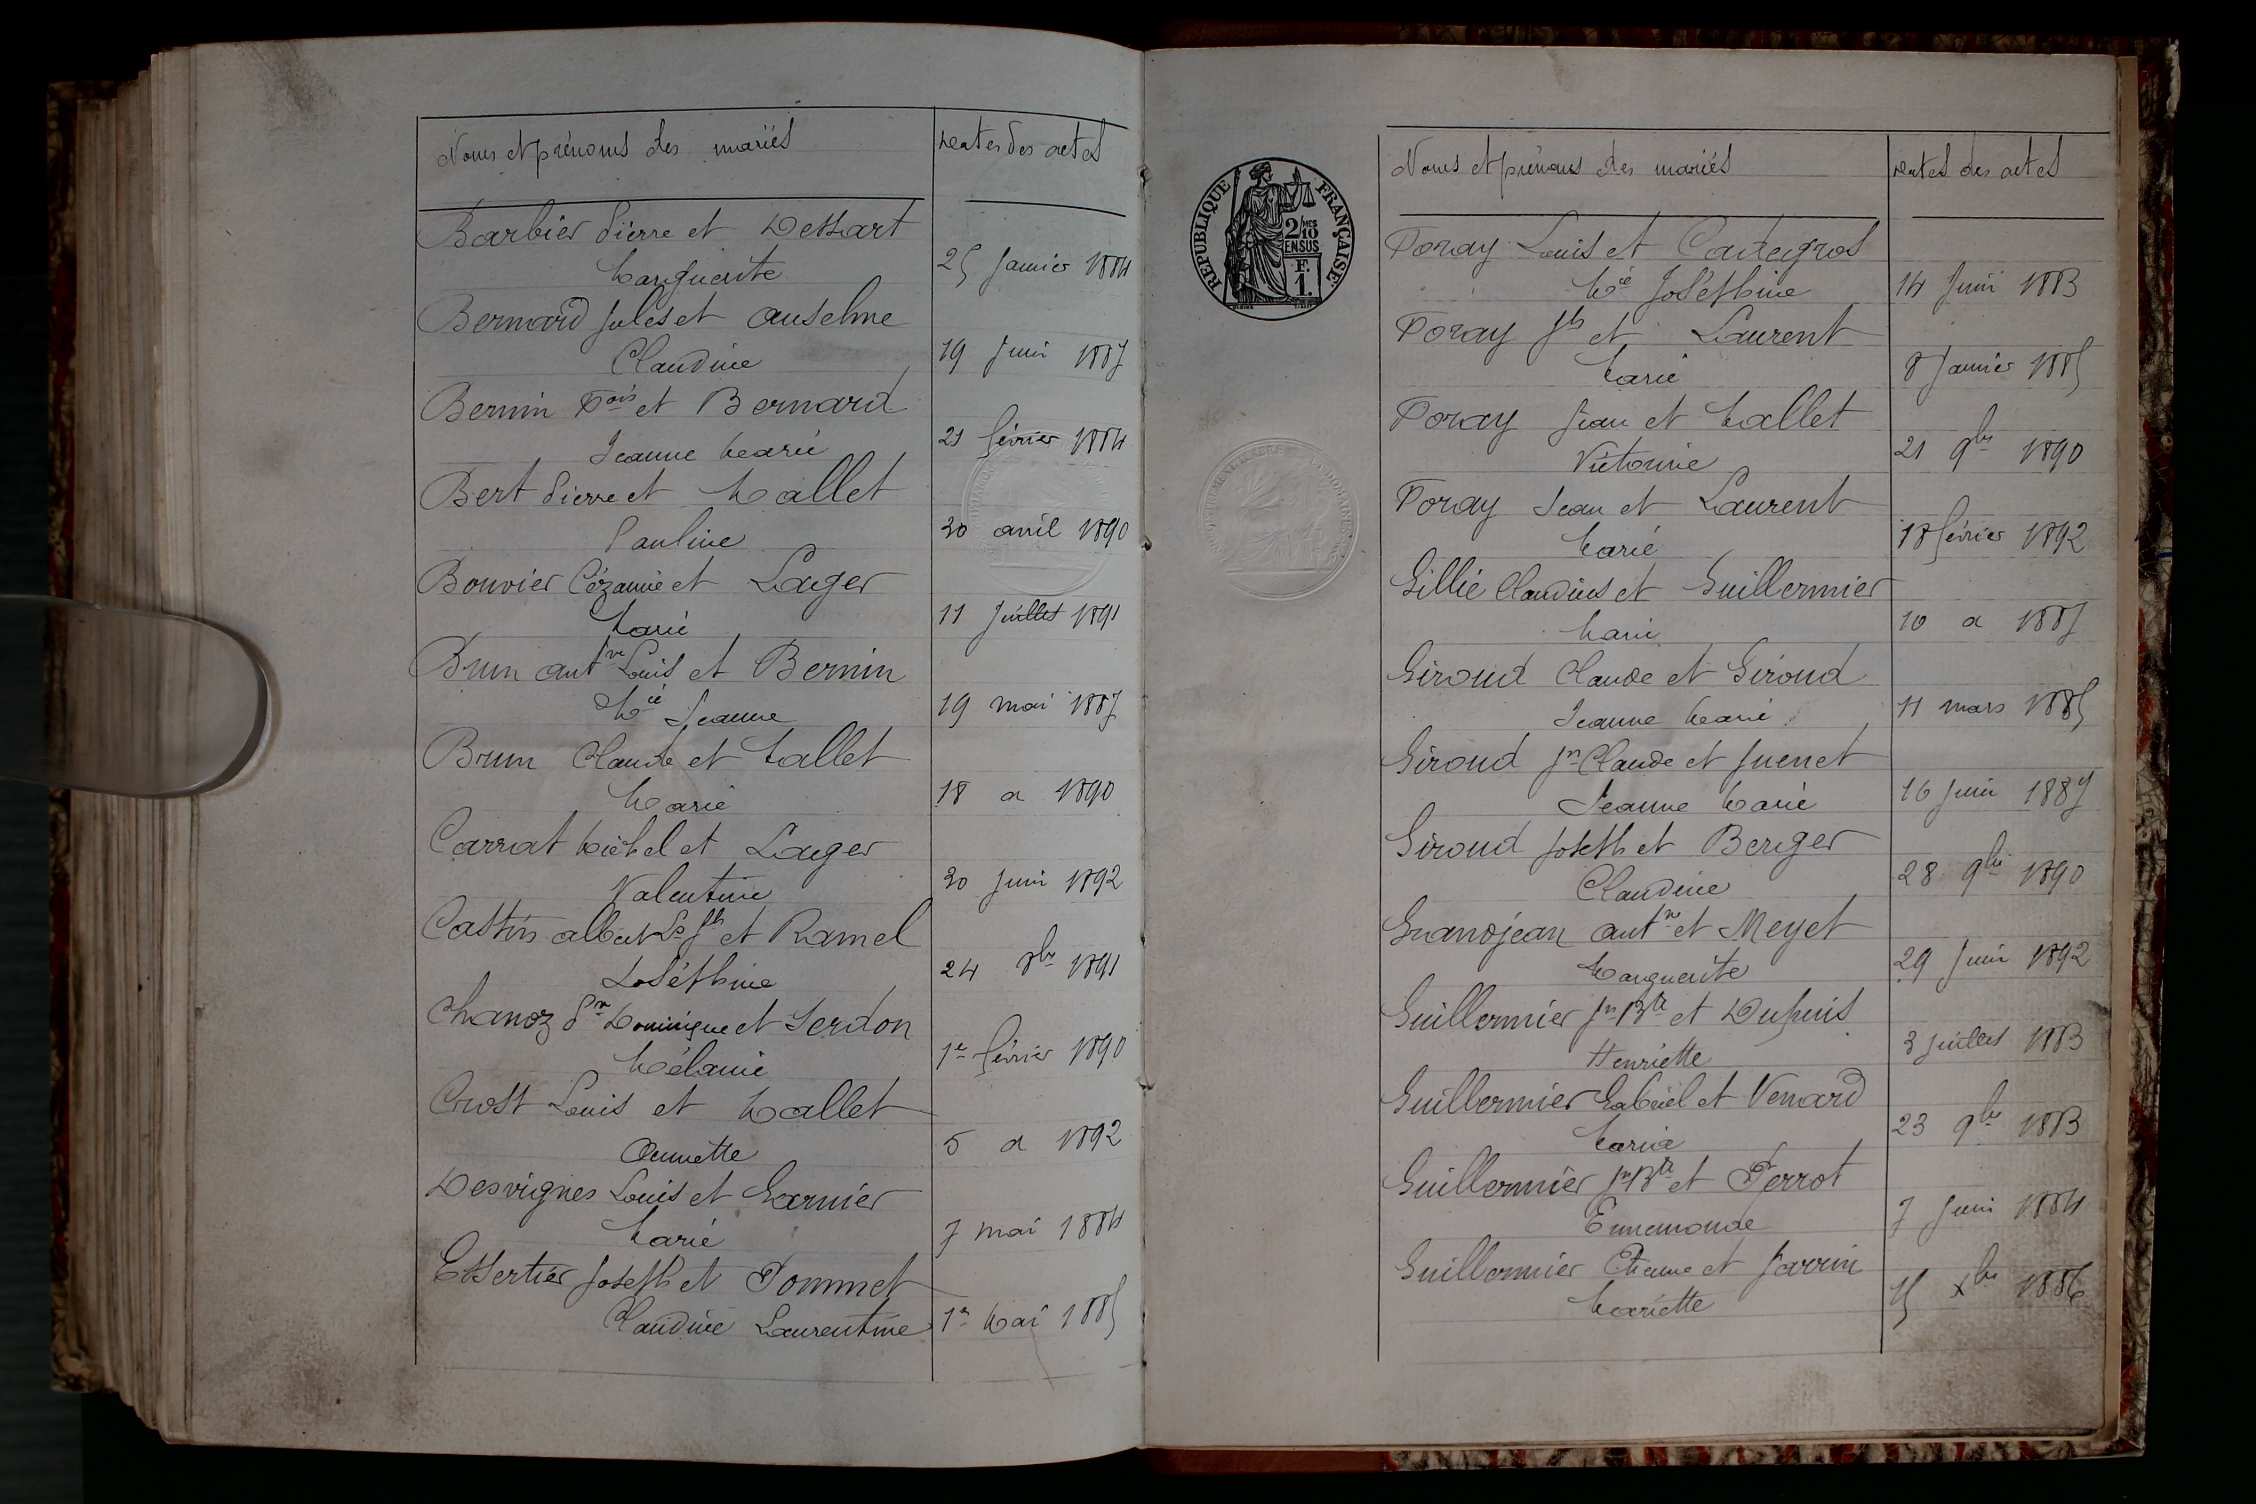 Noms et prénoms des mariés
Dates des actes
Barbier Pierre et Dessart
Marguerite
25 Janvier 1884
Bernard Jules et Anselme
Claudine
19 Juin 1887
Bernin Fois et Bernard
Jeanne Marie
21 février 1884
Bert Pierre et Mallet
Pauline
30 avril 1890
Bouvier Cézanne et Lager
Marie
11 Juillet 1891
Brun antne Louis et Bernin
Mie Jeanne
19 mai 1887
Brun Claude et Mallet
Marie
18 a 1890
Carrat Michel et Lager
Valentine
30 Juin 1892
Castin albert Ls Jh et Ramel
Joséphine
24 8bre 1891
Chanoz Pre Dominique et Serdon
Mélanie
1er février 1890
Crost Louis et Mallet
Annette
5 a 1892
Desvignes Louis et Garnier
Marie
7 mai 1884
Essertier Joseph et Pommet
Claudine Laurentine
1er Mai 1885
RÉPUBLIQUE FRANÇAISE
2/10mes
EN SUS
F.
1.
Noms et prénoms des mariés
Dates des actes
Foray Louis et Cadegros
Mie Joséphine
14 Juin 1883
Foray Jh et Laurent
Marie
8 Janvier 1885
Foray Jean et Mallet
Victorine
21 9bre 1890
Foray Jean et Laurent
Marie
18 février 1892
Gillié Claudius et Guillermier
Marie
10 a 1887
Giroud Claude et Giroud
Jeanne Marie
11 mars 1885
Giroud Jn Claude et Juenet
Jeanne Marie
16 Juin 1887
Giroud Joseph et Berger
Claudine
28 9bre 1890
Grandjean antne et Meyet
Marguerite
29 Juin 1892
Guillermier Jn Bte et Dupuis
Henriette
3 Juillet 1883
Guillermier Gabriel et Venard
Maria
23 9bre 1883
Guillermier Jn Bte et Perrot
Ennemonde
7 Juin 1884
Guillermier Etienne et Jarrin
Mariette
15 Xbre 1886